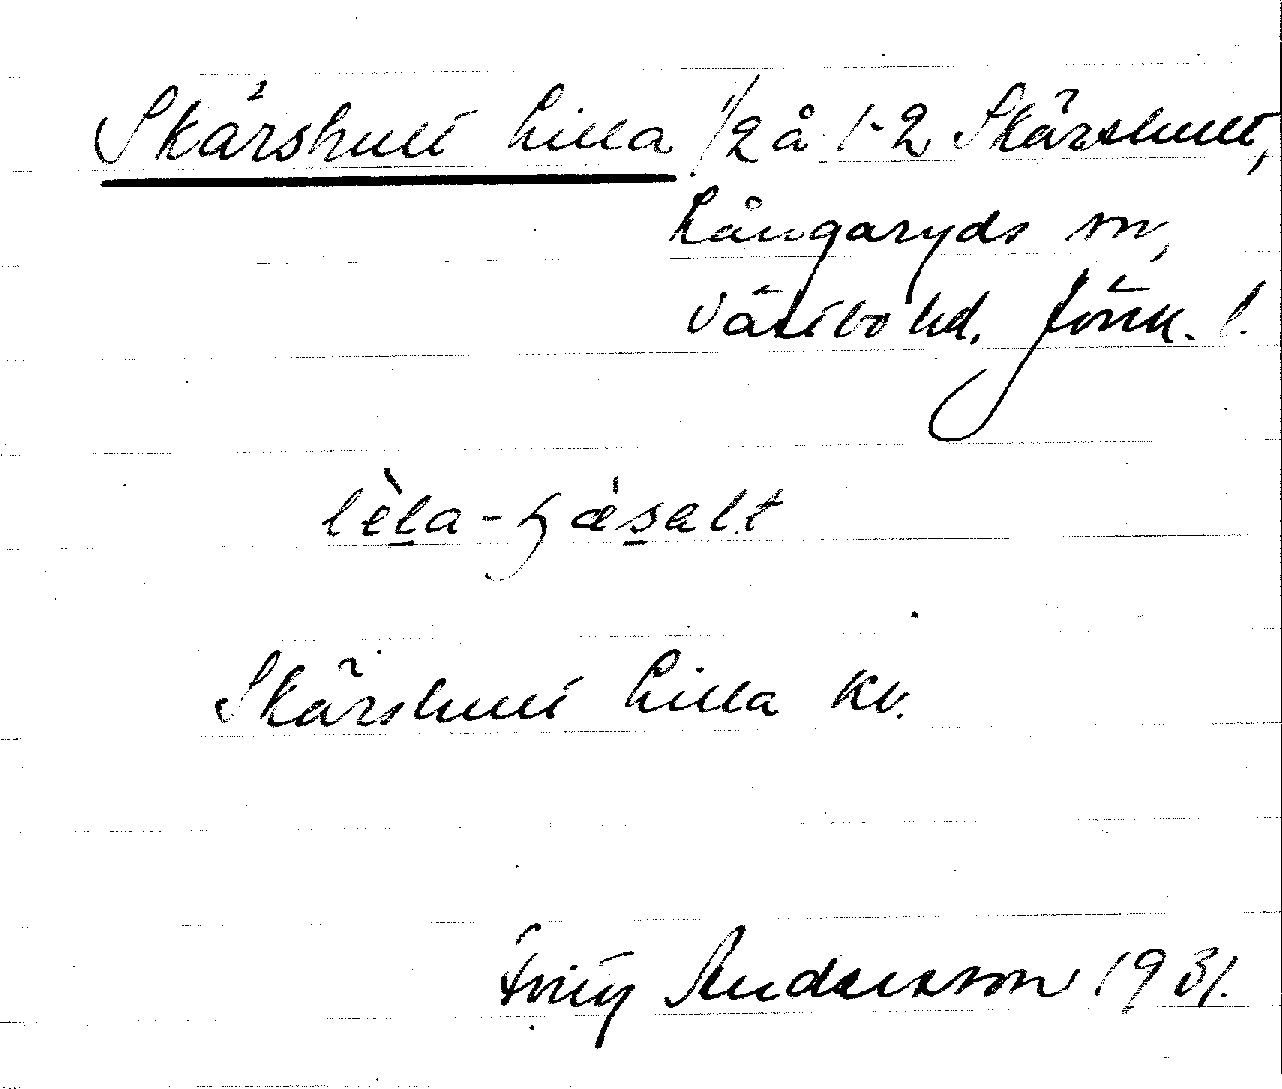 Skärshult Lilla 1/2 å 1-2 Skärshult,
Långaryds sn,
Västbo hd. Jönk. l.
lèla-ɧæ̀salt
Skärshult Lilla kv.
Andersson 1931.